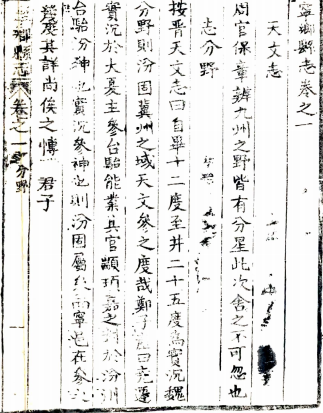 寧鄉縣志卷之一
天文志
周官保章辨九州之野皆有分星此次舍之不可忽也
志分野
按晉天文志曰自畢十二度至井二十五度爲實沉魏
分野則汾固冀州之域天文參之度哉鄭子曰堯遷
實沉於大夏主參台駘能業其官顓頊嘉之於汾洲
台駘汾神也實沉參神也則汾固屬參而寧邑在參
其詳尚俟之博 君子
鄉縣志 卷之一 分野